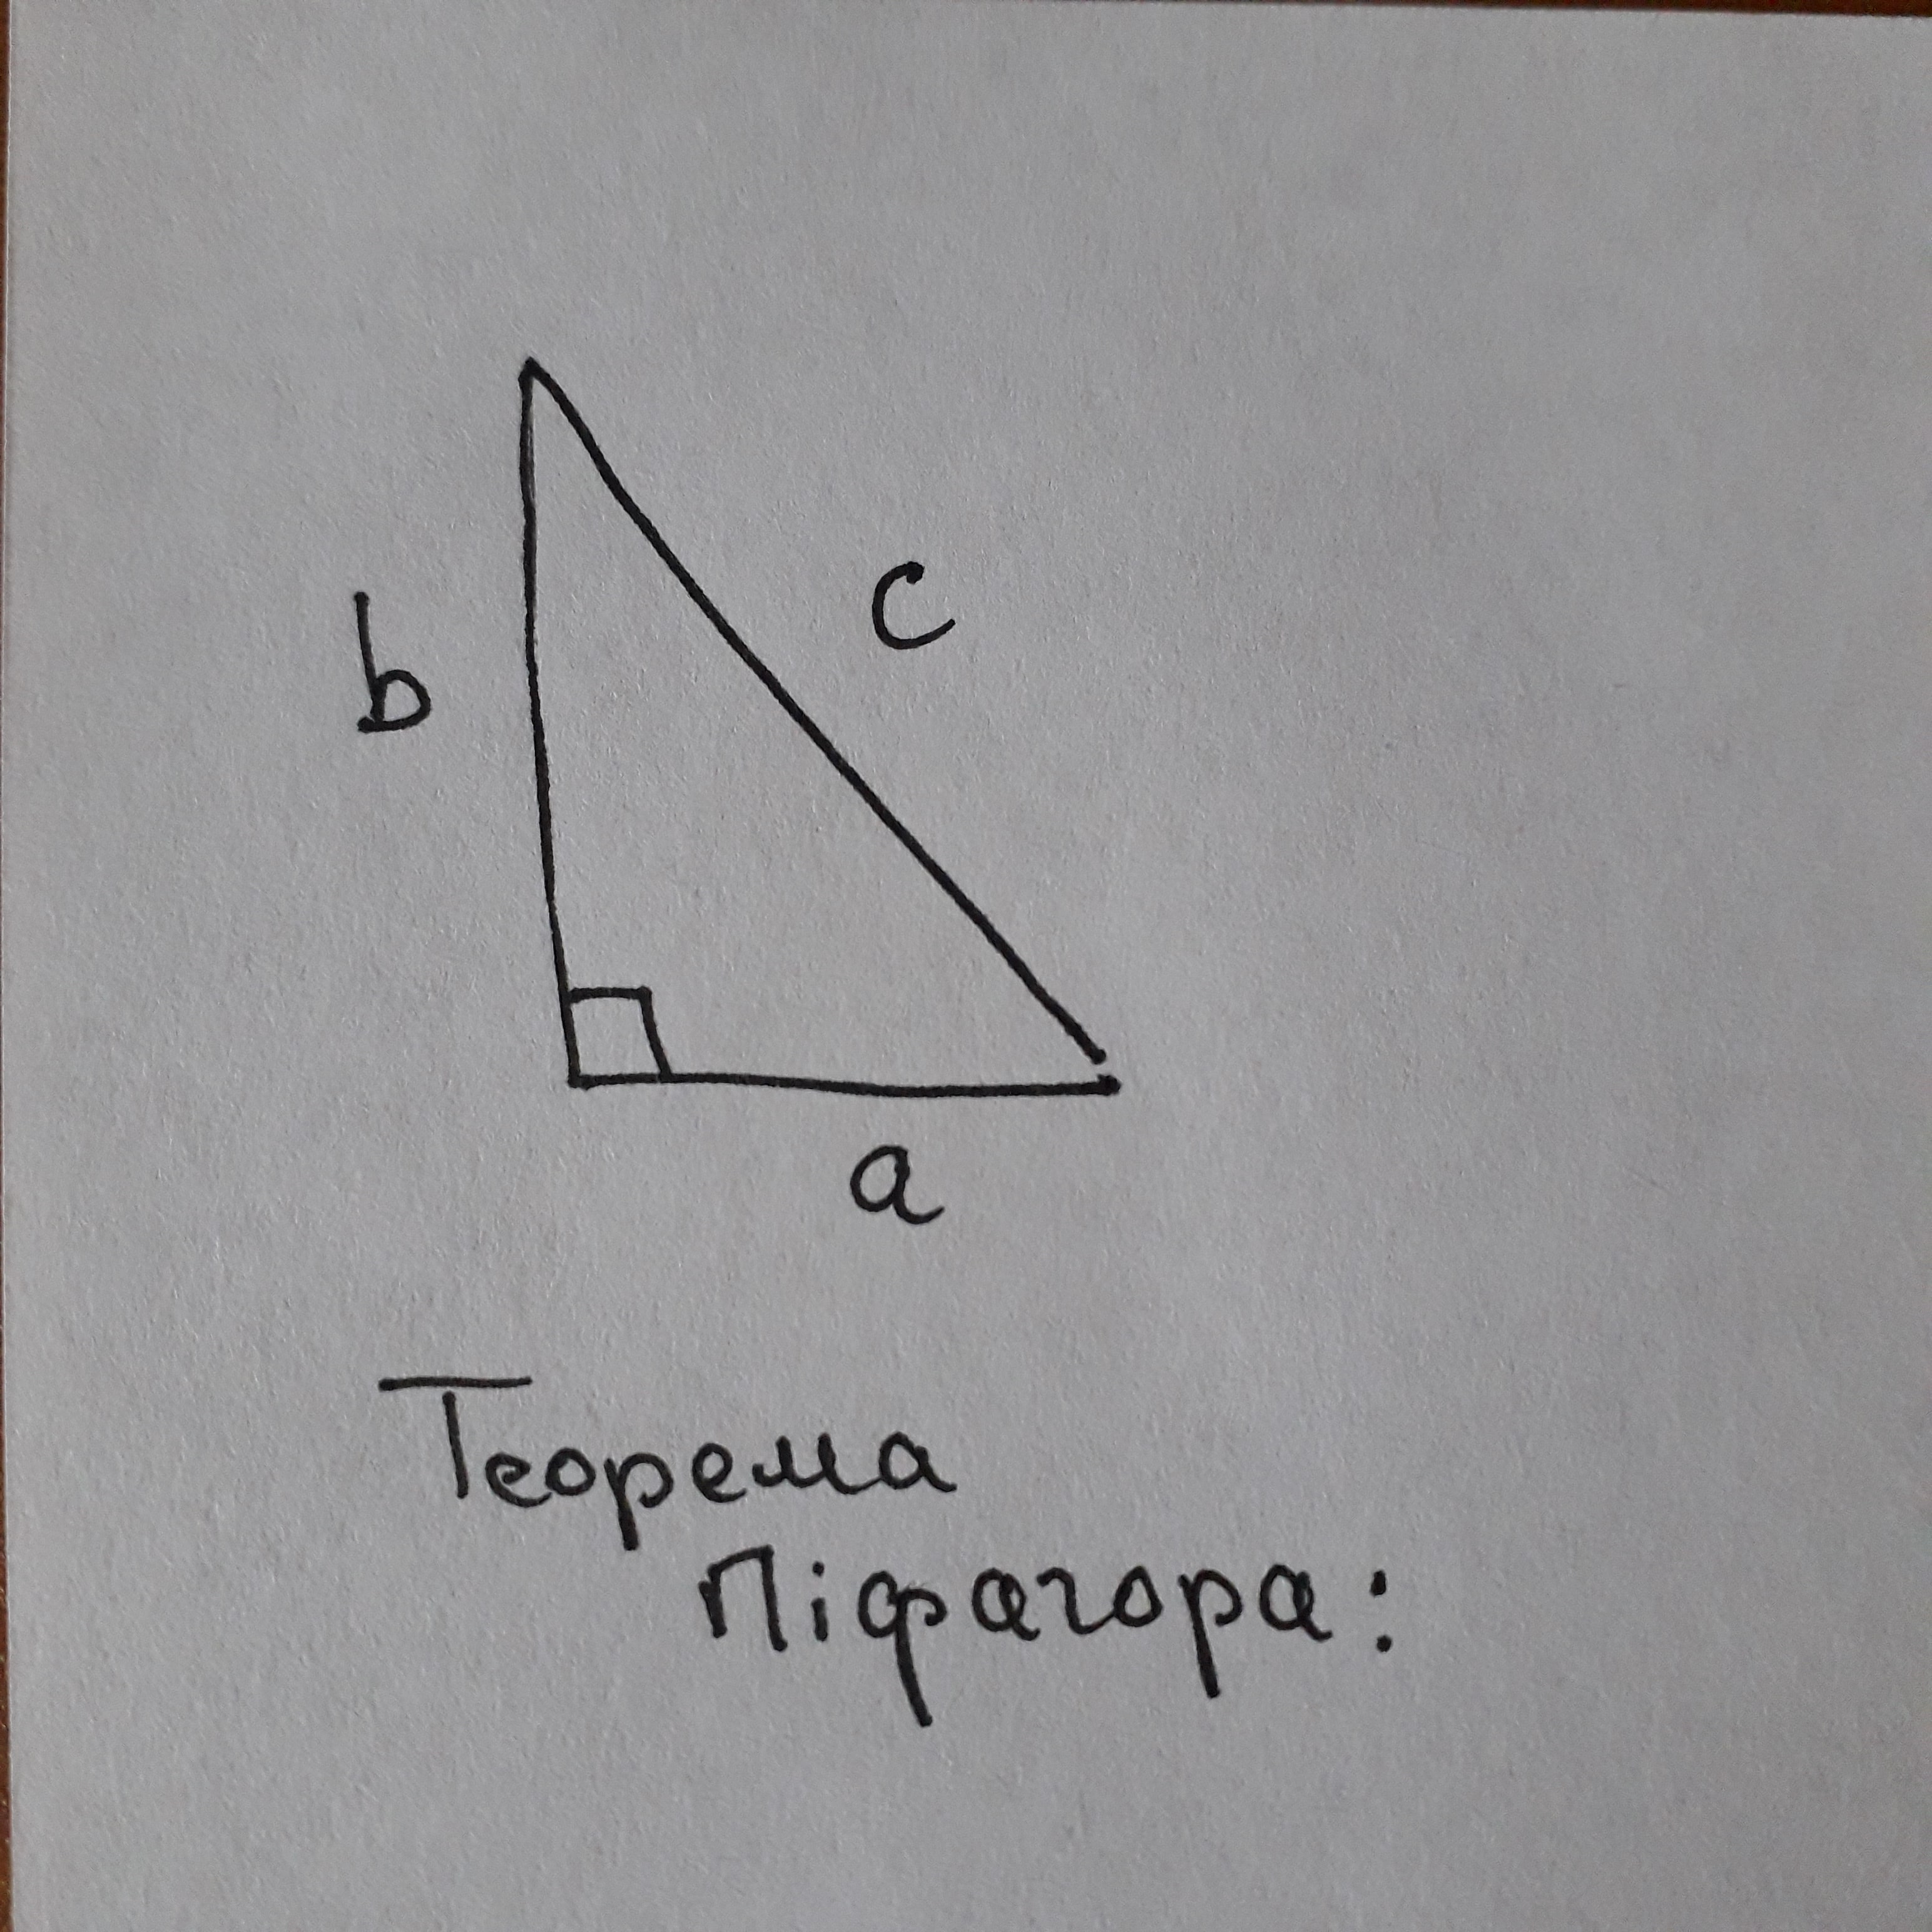 b
c
a
Теорема
Піфагора: